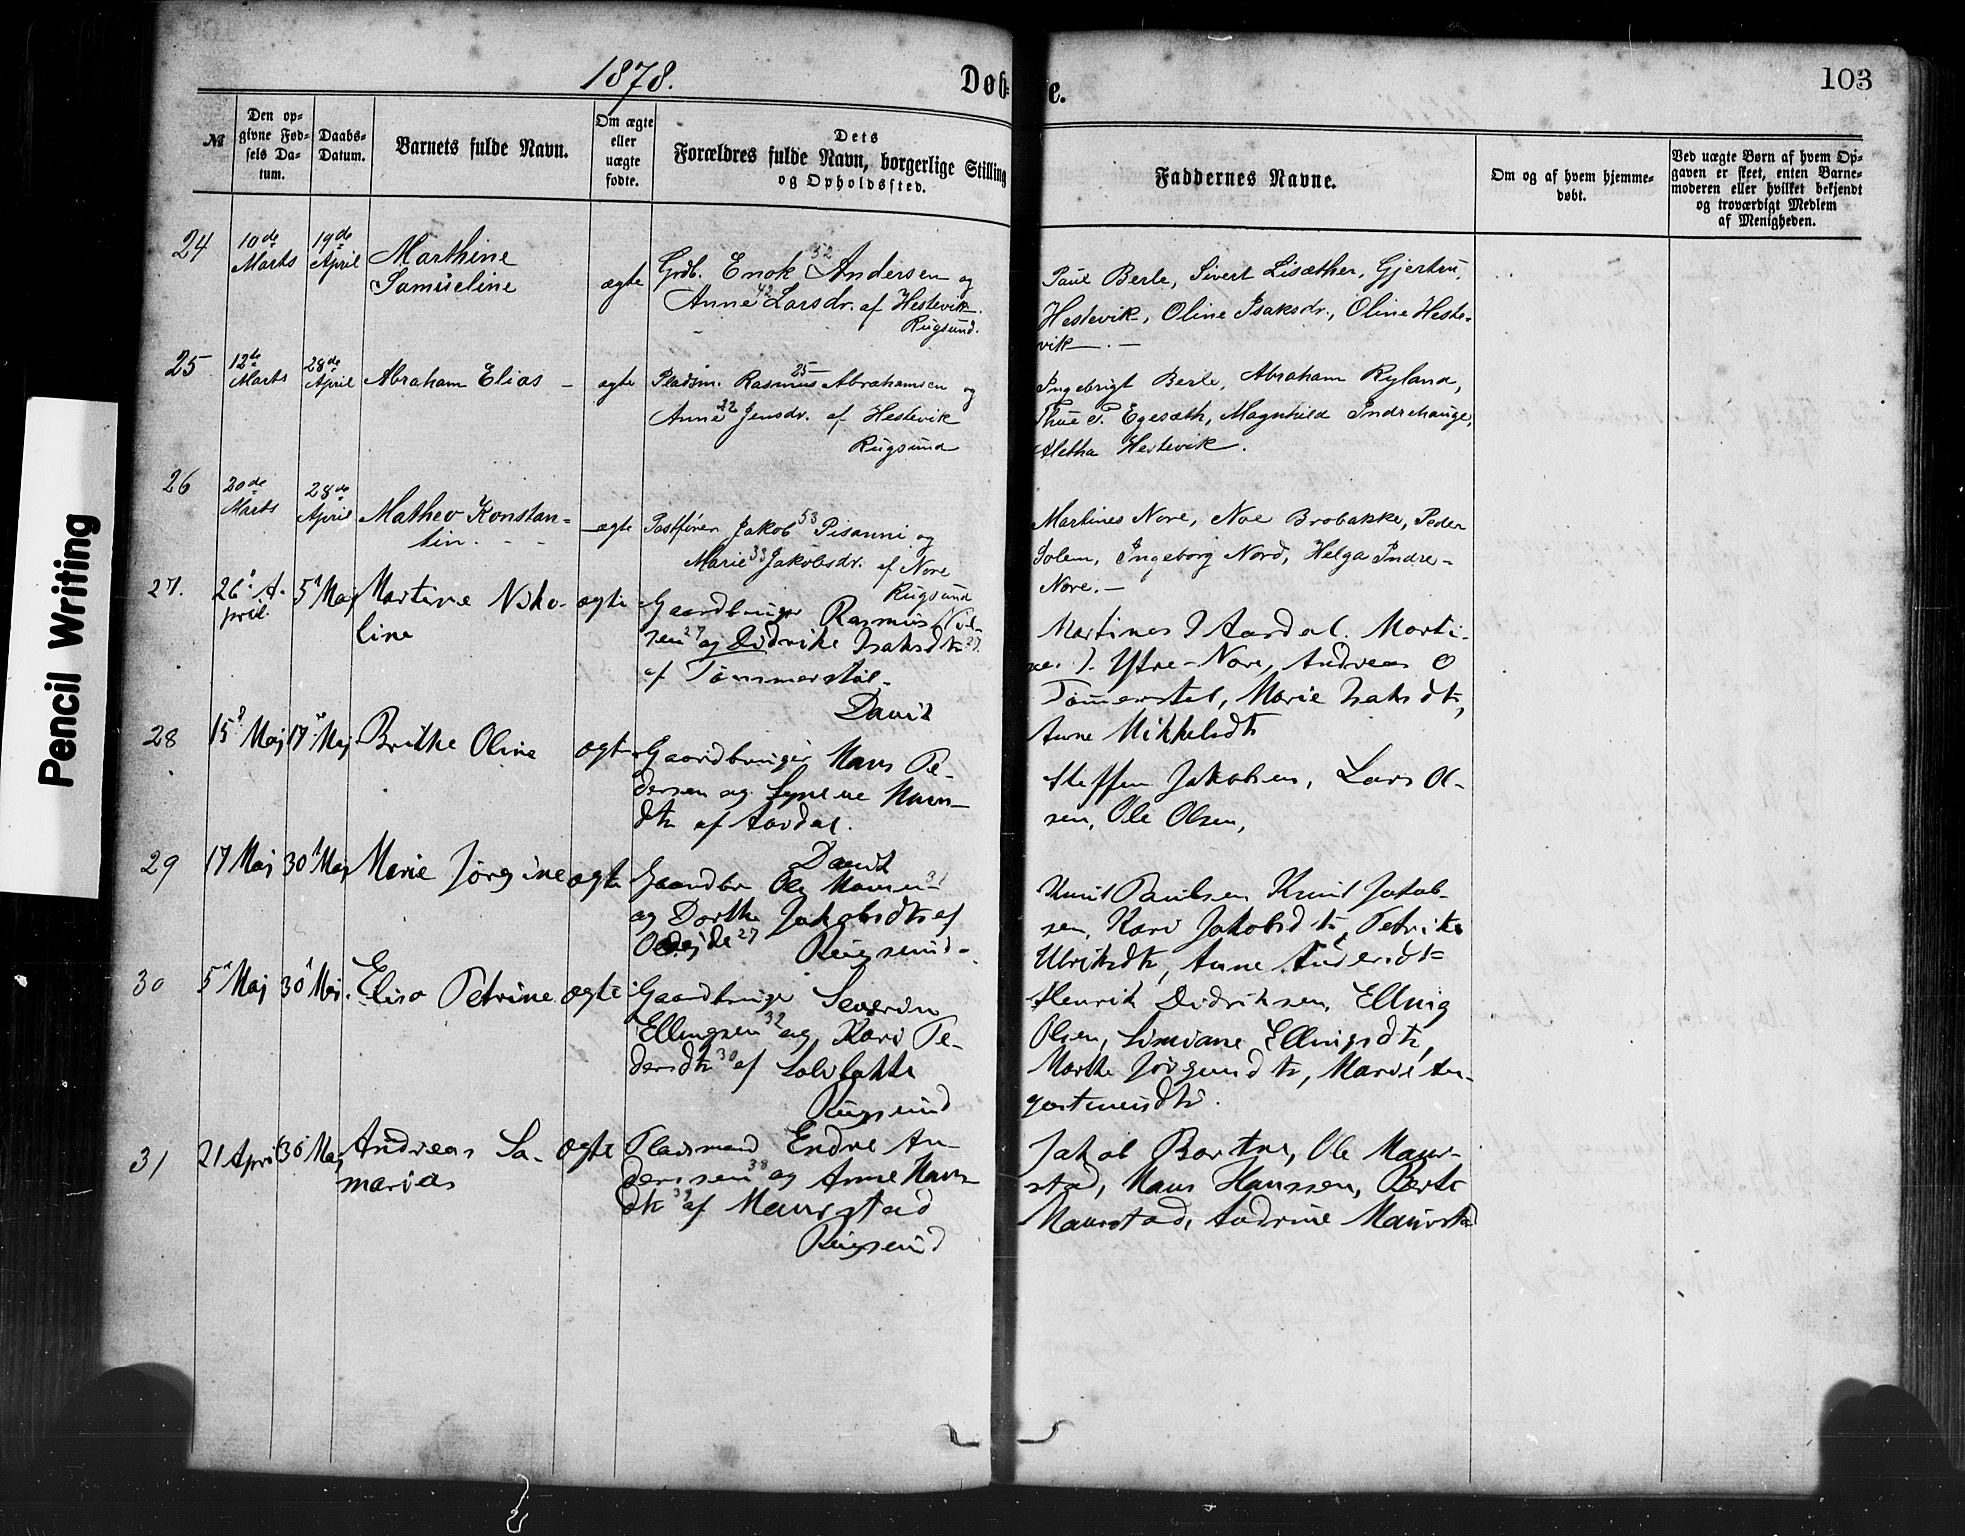 1878.
Døb- te.
103
№
Den op-
givne Fød-
sels Da-
tum.
Daabs-
Datum.
Barnets fulde Navn.
Om ægte
eller
uægte
fødte.
Dets
Forældres fulde Navn, borgerlige Stilling
og Opholdssted.
Faddernes Navne.
Om og af hvem hjemme-
døbt.
Ved uægte Børn af hvem Op-
gaven er skeet, enten Barne-
moderen eller hvilket bekjendt
og troværdigt Medlem
af Menigheden.
24
10de
Marts
19de
April
Marthine
Samueline
ægte
Grdb. Enok 52 Andersen og
Anne 42 Larsdr. af Hestevik
Rugsund.
Paul Berle, Sivert Lisæther, Gjertru
Hestevik, Oline Isaksdr., Oline Heste-
vik. —
25
12te
Marts
28de
April
Abraham Elias –
ægte
Pladsm. Rasmus 25 Abrahamsen og
Anne 22 Jensdr. af Hestevik
Rugsund
Ingebrigt Berle, Abraham Ryland,
Thue P. Egesæth, Magnhild Indrehauge,
Aletha Hestevik.
26
20de
Marts
28de
April
Matheo Konstan-
tin. - -
ægte
Postfører Jakob 53 Pisanni og
Marie 33 Jakobsdr. af Nore
Rugsund
Martines Nore, Noe Brobakke, Peder
Solem, Ingeborg Nord, Helga Indre-
Nore. —
27.
26 A-
pril
5 Maj
Martine Niko-
line
ægte
Gaardbruger Rasmus Niel-
sen 27 og Didrike Isaksdtr
af Tømmerstøl
David
Martines I Aardal. Morti-
Ytre-Nore, Andreas O
Tømerstøl, Marie Isaksdtr,
Anne Mikkelsdtr
28
15 Maj
17 Maj
Brithe Oline
ægte
Gaardbruger Hans Pe-
dersen og Synneve Hans-
dtr af Aardal.
David
Steffen Jakobsen, Lars Ol-
sen, Ole Olsen,
29
17 Maj
30 Maj
Marie Jørgine
ægte
Gaardbr Ole Hansen 31
og Dorthe Jakobsdtr af
27 Rugsund
Knut Paulsen Knut Jakob-
sen, Kari Jakobsdtr, Petrike
Ulriksdtr, Anne Andersdtr
30
5 Maj
30 Maj.
Elisa Petrine
ægte
Gaardbruger Severin
Ellingsen 32 og Kari Pe-
dersdtr 30 af Solibakke
Rugsund
Henrik Didriksen, Elling
Olsen, Simiane Ellingsdtr,
Marthe Jørgensdtr, Marie An-
31
21 April
30 Maj
Andreas Sa-
marias
ægte
Pladsmand Endre An-
dersen 38 og Anne Hans-
dtr 39 af Maurstad
Rugsund
Jakob Bortne, Ole Maur-
stad, Hans Hanssen, Berte
Maurstad, Andrine Maurstad
Pencil Writing